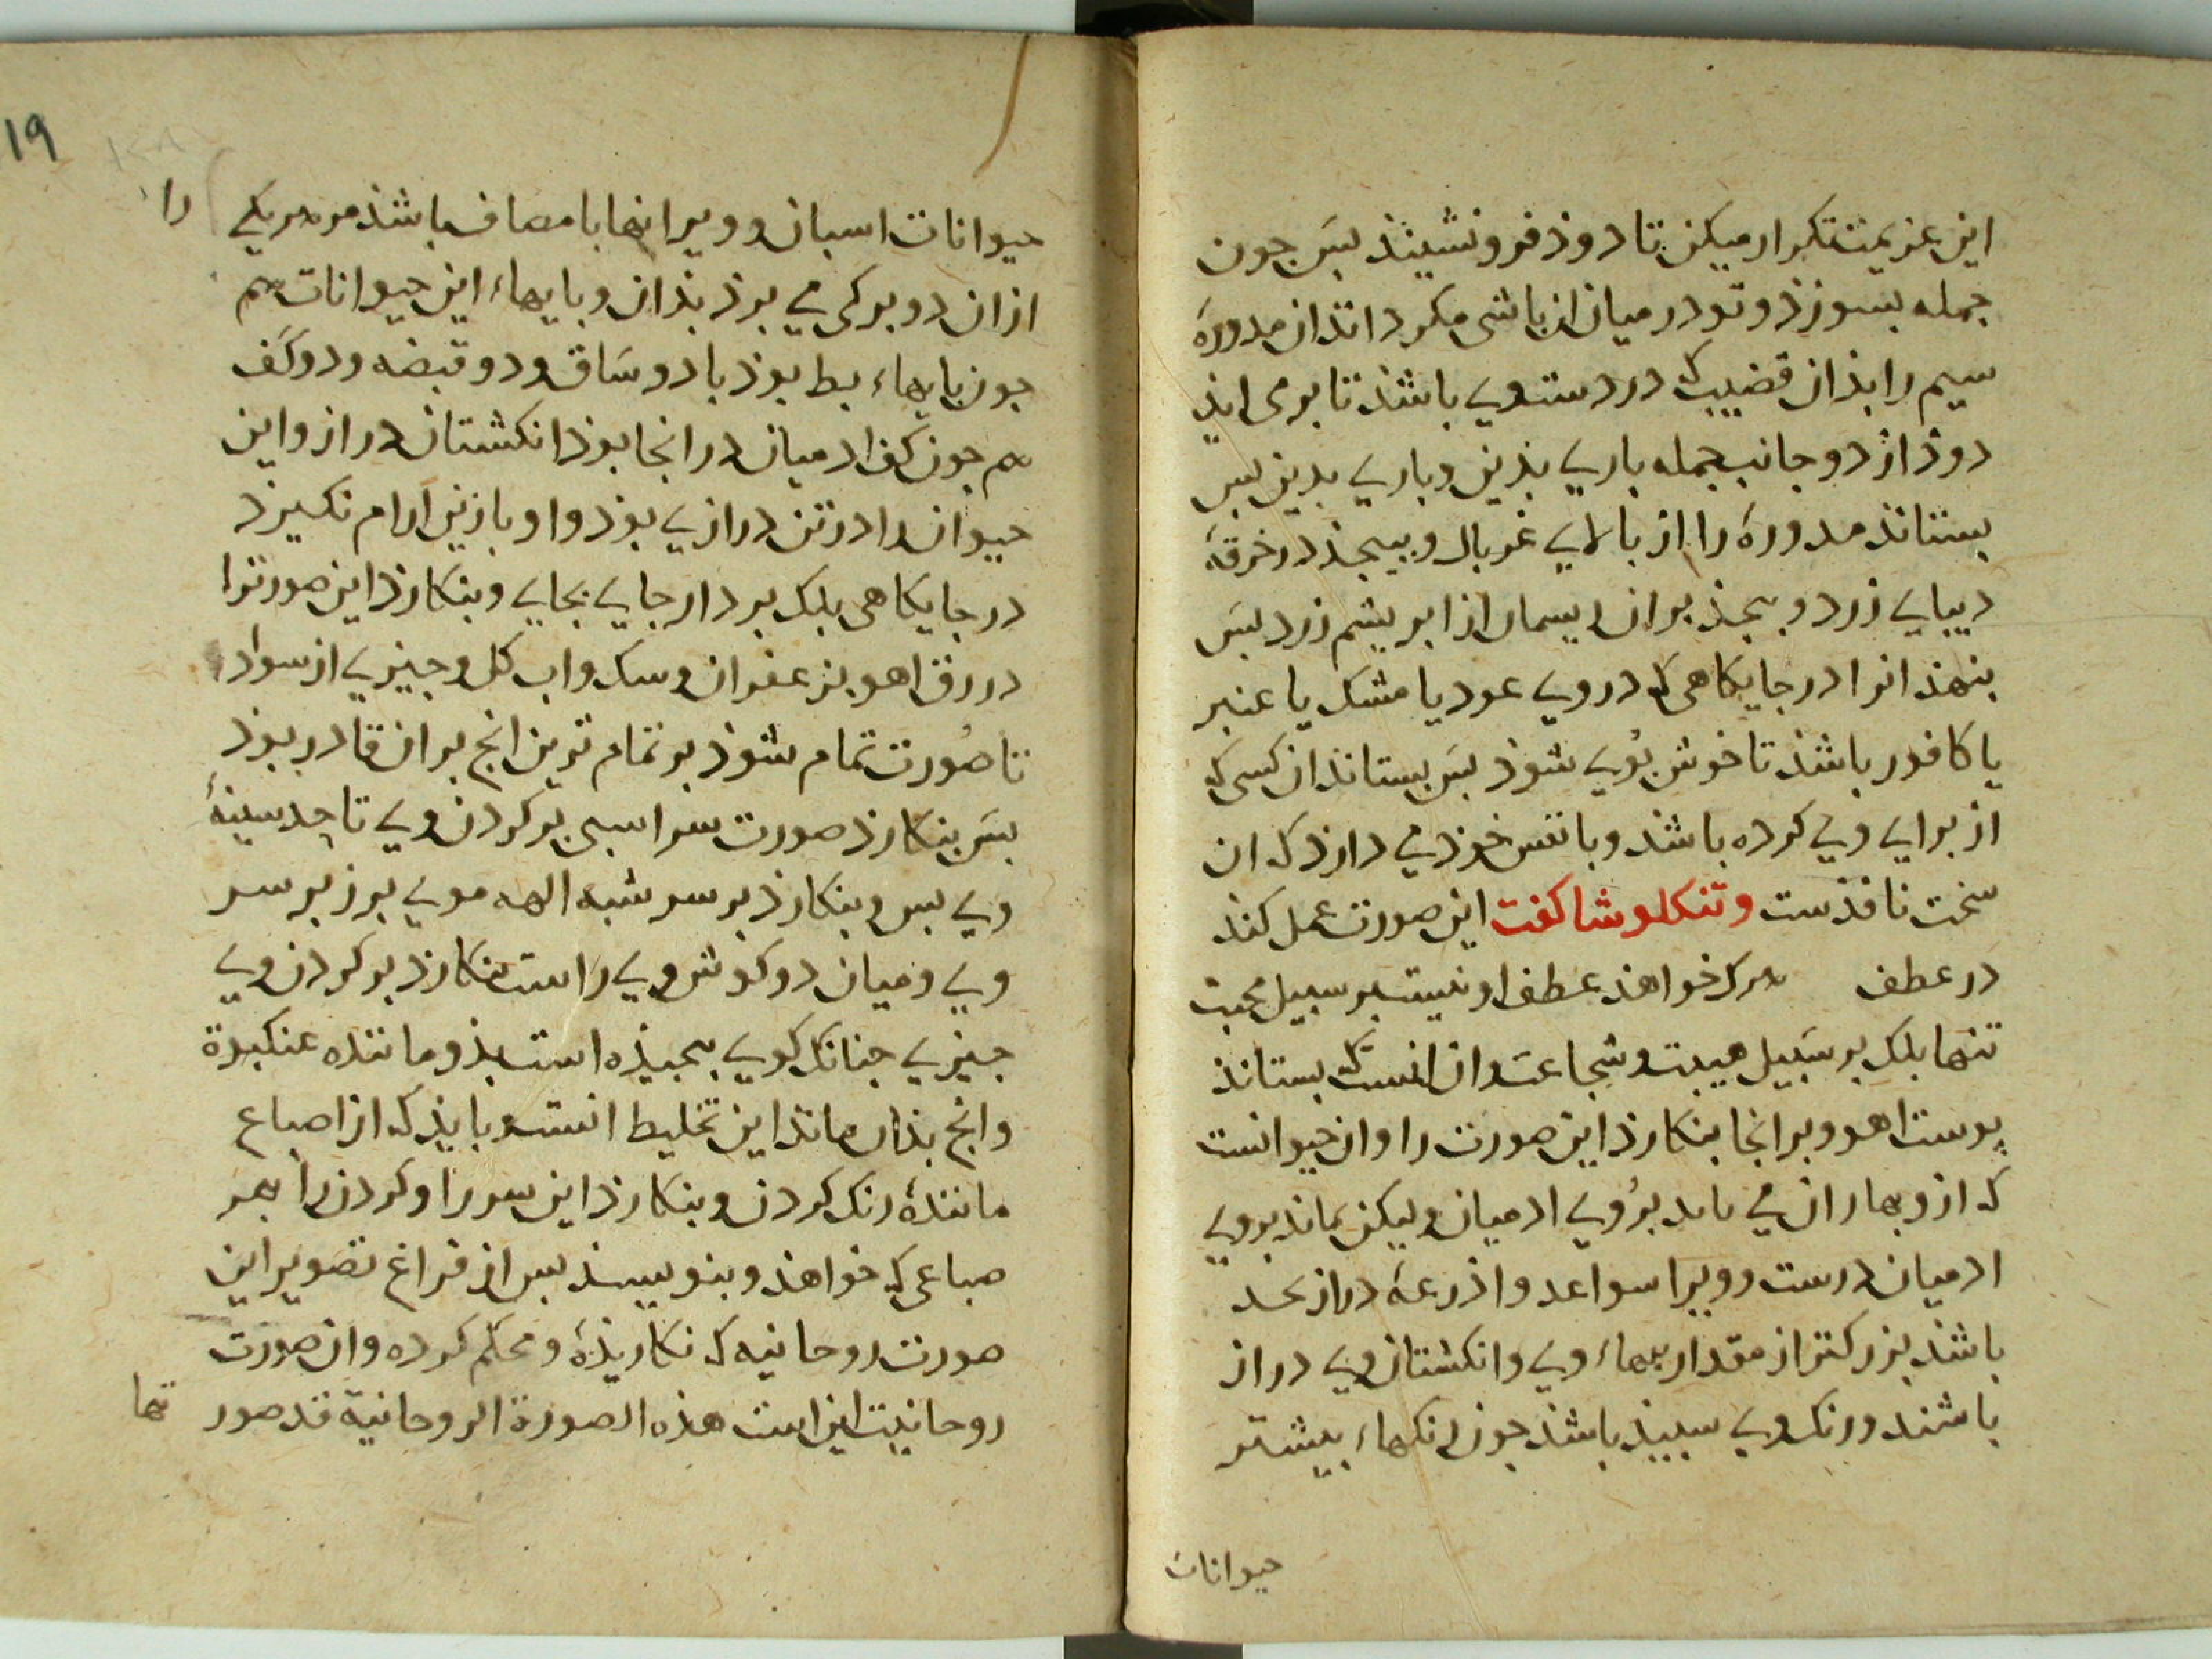 این عزیمت تکرار میکن تا دوذ فرو نشیند بس جون
جمله بسوزد و تو در میان ان باشی مکرداند ان مدورهٔ
سیم را بذان قضیب که در دست وی باشذ تا بر می اید
دوذ از دو جانب جمله باری بذین و باری بدین بس
بستاند مدورهٔ را از بالای غربال و بیبجذ در خرقهٔ
دیبای زرد و ببجذ بران ریسمان از ابریشم زرد بس
بنهذ انرا در جایکاهی که در وی عود یا مشک یا عنبر
یا کافور باشذ تا خوش بوی شوذ بس بستاند ان کسی که
از برای وی کرده باشد و با نفس خوذ می دارذ که ان
سخت نافذست وتنکلوشا کفت این صورت عمل کند
در عطف هرکه خواهذ عطف او نیست بر سبیل محبت
تنها بلک بر سبیل هیبت و شجاعت وان انست که بستاند
پوست اهو و برانجا بنکارذ این صورت را وان حیوانست
که ازو بهاران می ماید بروی ادمیان ولیکن نماند بروی
ادمیان درست رو ویرا سواعد و اذرعهٔ دراز بحد
باشذ بزرکتر از مقدار بیهاء وی وانکشتان وی دراز
باشند ورنک وی سبیذ باشذ جون رنکهاء بیشتر
حیوانات
۱۹
حیوانات اسبان و ویرا انها با مصاف باشذ مر هر یکی را
ازان دو برکی می برذ بذان و بایهاء این حیوانات هم
جون بایهاء بط بوذ با دو ساق و دو قبضه و دو کف
هم جون کف ادمیان در انجا بوذ انکشتان دراز واین
حیوان را در تن درازی بوذ واو بازین ارام نکیرد
در جایکاهی بلک بردار جای بجای و بنکارذ این صورترا
در رق اهو بزعفران وسک واب کل و جیزی از سواد
تا صورت تمام شوذ بر تمام ترین انج بران قادر بوذ
بس بنکارذ صورت سر اسبی بر کردن وی تا حد سینهٔ
وی بس و بنکارذ بر سر شبه الهه موی برز بر سر
وی و میان دو کوش وی راست بنکارذ بر کردن وی
جیزی جنانک کوی ببجیذه است بذو ماننده عنکبوة
وانج بذان ماند این تخلیط انست و بایذ که از اصباع
مانندهٔ رنک کردن و بنکارذ این سر را و کردن را بهر
صباعی که خواهذ و بنویسند بس از فراغ تصویر این
صورت روحانیه که نکاریذهٔ و محکم کرده وان صورت
روحانیت این است هذه الصورة الروحانیة قد صور تها